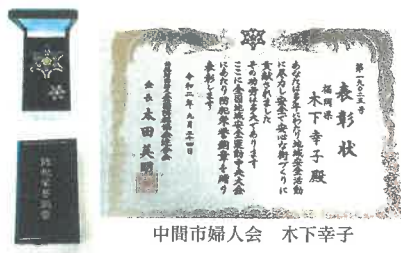 第一九〇二五号
表彰状
福岡県
木下幸子殿
あなたは多年にわたり地域安全活動
に尽力し安全で安心な街づくりに
貢献されました
その功労は多大であります
ここに全国地域安全運動中央大会
にあたり防犯栄誉銅章を贈り
表彰します
令和二年九月二十四日
会長 太田美明
防犯栄誉銅章
中間市婦人会 木下幸子